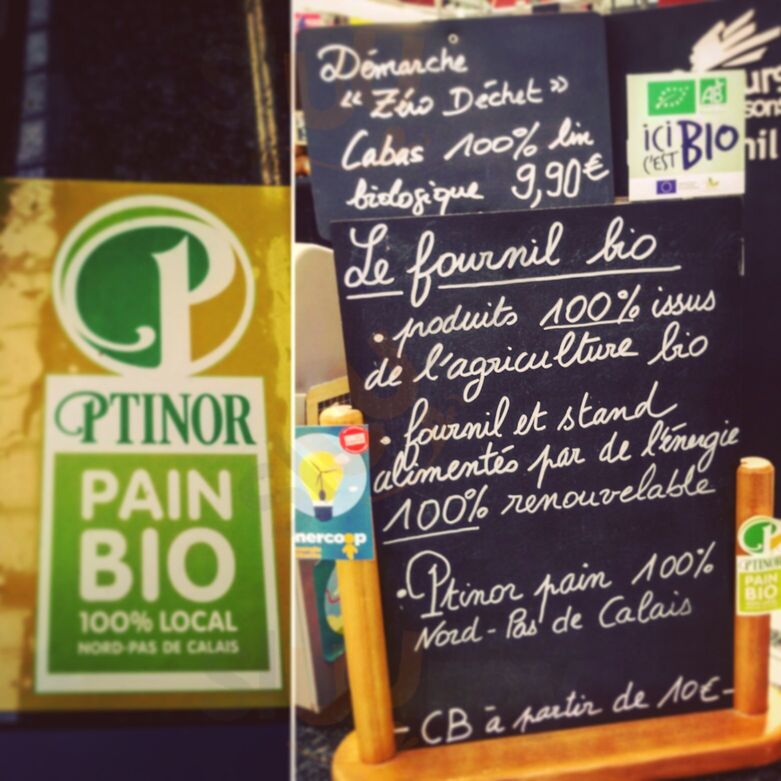 PTINOR
PAIN
BIO
100% LOCAL
NORD-PAS DE CALAIS
Démarche
"Zéro Déchet"
Cabas 100% lin
biologique 9,90€
AB
ICI
C'EST BIO
Le fournil bio
• produits 100% issus
de l'agriculture bio
• fournil et stand
alimentés par de l'énergie
100% renouvelable
• Ptinor pain 100%
Nord-Pas de Calais
- CB à partir de 10€-
nercoop
PTINOR
PAIN
BIO